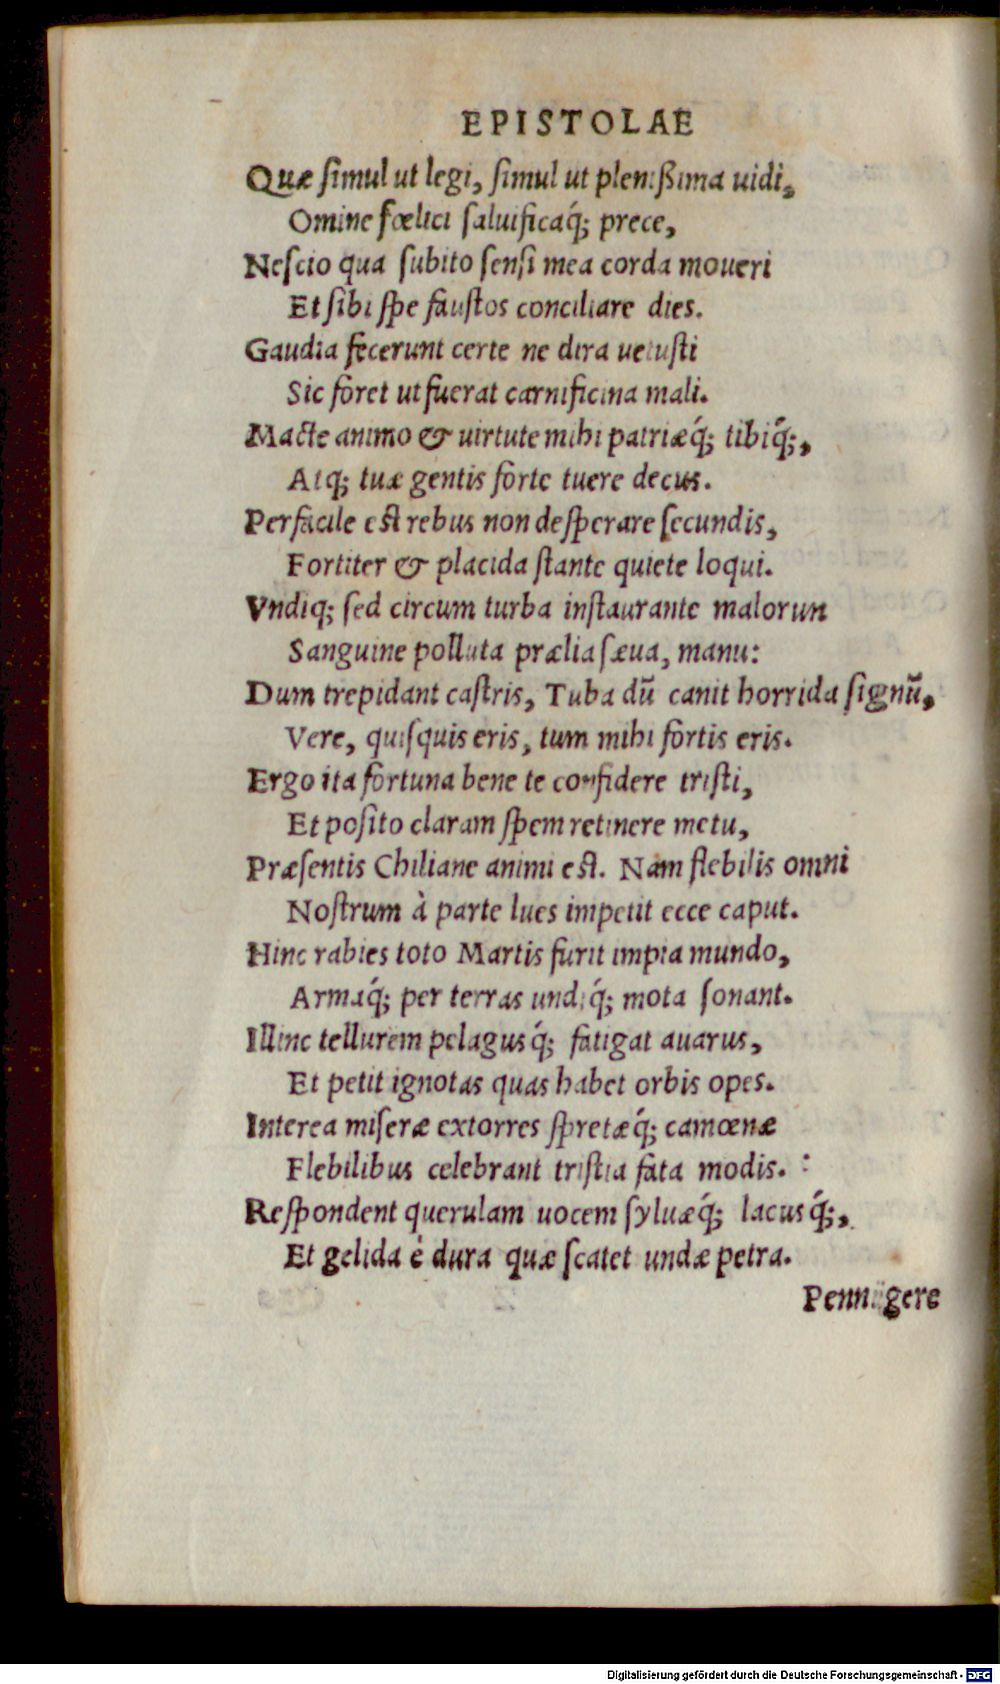 EPISTOLAE
Quæ simul ut legi, simul ut plenißima uidi,
Omine fœlici saluificaq́; prece,
Nescio qua subito sensi mea corda moueri
Et sibi spe faustos conciliare dies.
Gaudia fecerunt certe ne dira uetusti
Sic foret ut fuerat carnificina mali.
Macte animo & uirtute mihi patriæq́; tibiq́;,
Atq; tuæ gentis forte tuere decus.
Perfacile est rebus non desperare secundis,
Fortiter & placida stante quiete loqui.
Vndiq; sed circum turba instaurante malorum
Sanguine polluta prælia sæua, manu:
Dum trepidant castris, Tuba dū canit horrida signū,
Vere, quisquis eris, tum mihi fortis eris.
Ergo ita fortuna bene te confidere tristi,
Et posito claram spem retinere metu,
Præsentis Chiliane animi est. Nam flebilis omni
Nostrum à parte lues impetit ecce caput.
Hinc rabies toto Martis furit impia mundo,
Armaq́; per terras undiq́; mota sonant.
Illinc tellurem pelagusq́; fatigat auarus,
Et petit ignotas quas habet orbis opes.
Interea miseræ extorres spretæq́; camœnæ
Flebilibus celebrant tristia fata modis.
Respondent querulam uocem syluæq́; lacusq́;,
Et gelida è dura quæ scatet undæ petra.
Pennigere
Digitalisierung gefördert durch die Deutsche Forschungsgemeinschaft - DFG